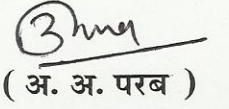 ( अ. अ. परब )